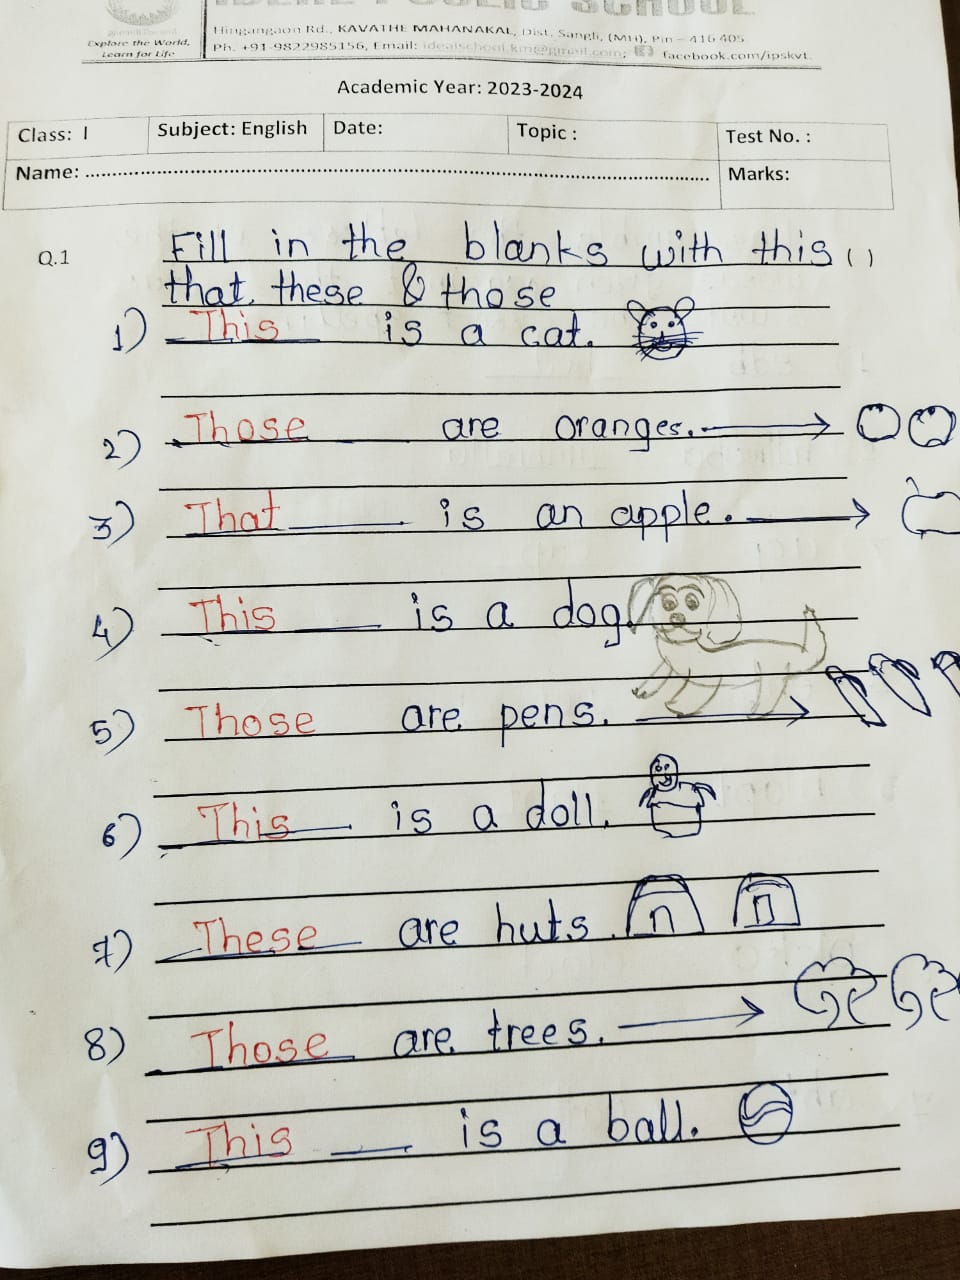 Explore the World,
Learn for Life
Hingangaon Rd., KAVATHE MAHANAKAL, Dist. Sangli, (MH), Pin - 416 405
Ph. +91-9822985156, Email: idealschool.km@gmail.com; facebook.com/ipskvt.
Academic Year: 2023-2024
Class: I Subject: English Date: Topic : Test No. :
Name: Marks:
Q.1 Fill in the blanks with this ( )
that, these & those
1) This is a cat.
2) Those are oranges.
3) That is an apple.
4) This is a dog.
5) Those are pens.
6) This is a doll.
7) These are huts.
8) Those are trees.
9) This is a ball.